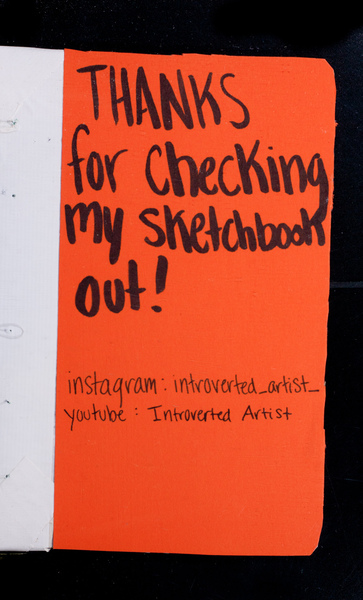 THANKS
for checking
my sketchbook
out!
instagram: introverted_artist_
youtube: Introverted Artist